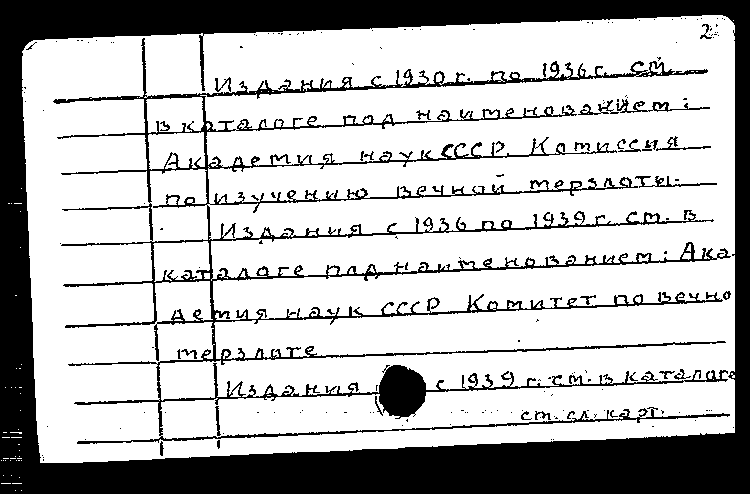 2
Издания с 1930 г. по 1936 г. см.
в каталоге под наименованием:
Академия наук СССР. Комиссия
по изучению вечной мерзлоты.
Издания с 1936 по 1939 г. см. в
каталоге под наименованием: Ака-
демия наук СССР Комитет по вечно
мерзлоте
Издания с 1939 г. см. в каталоге
см. сл. карт.